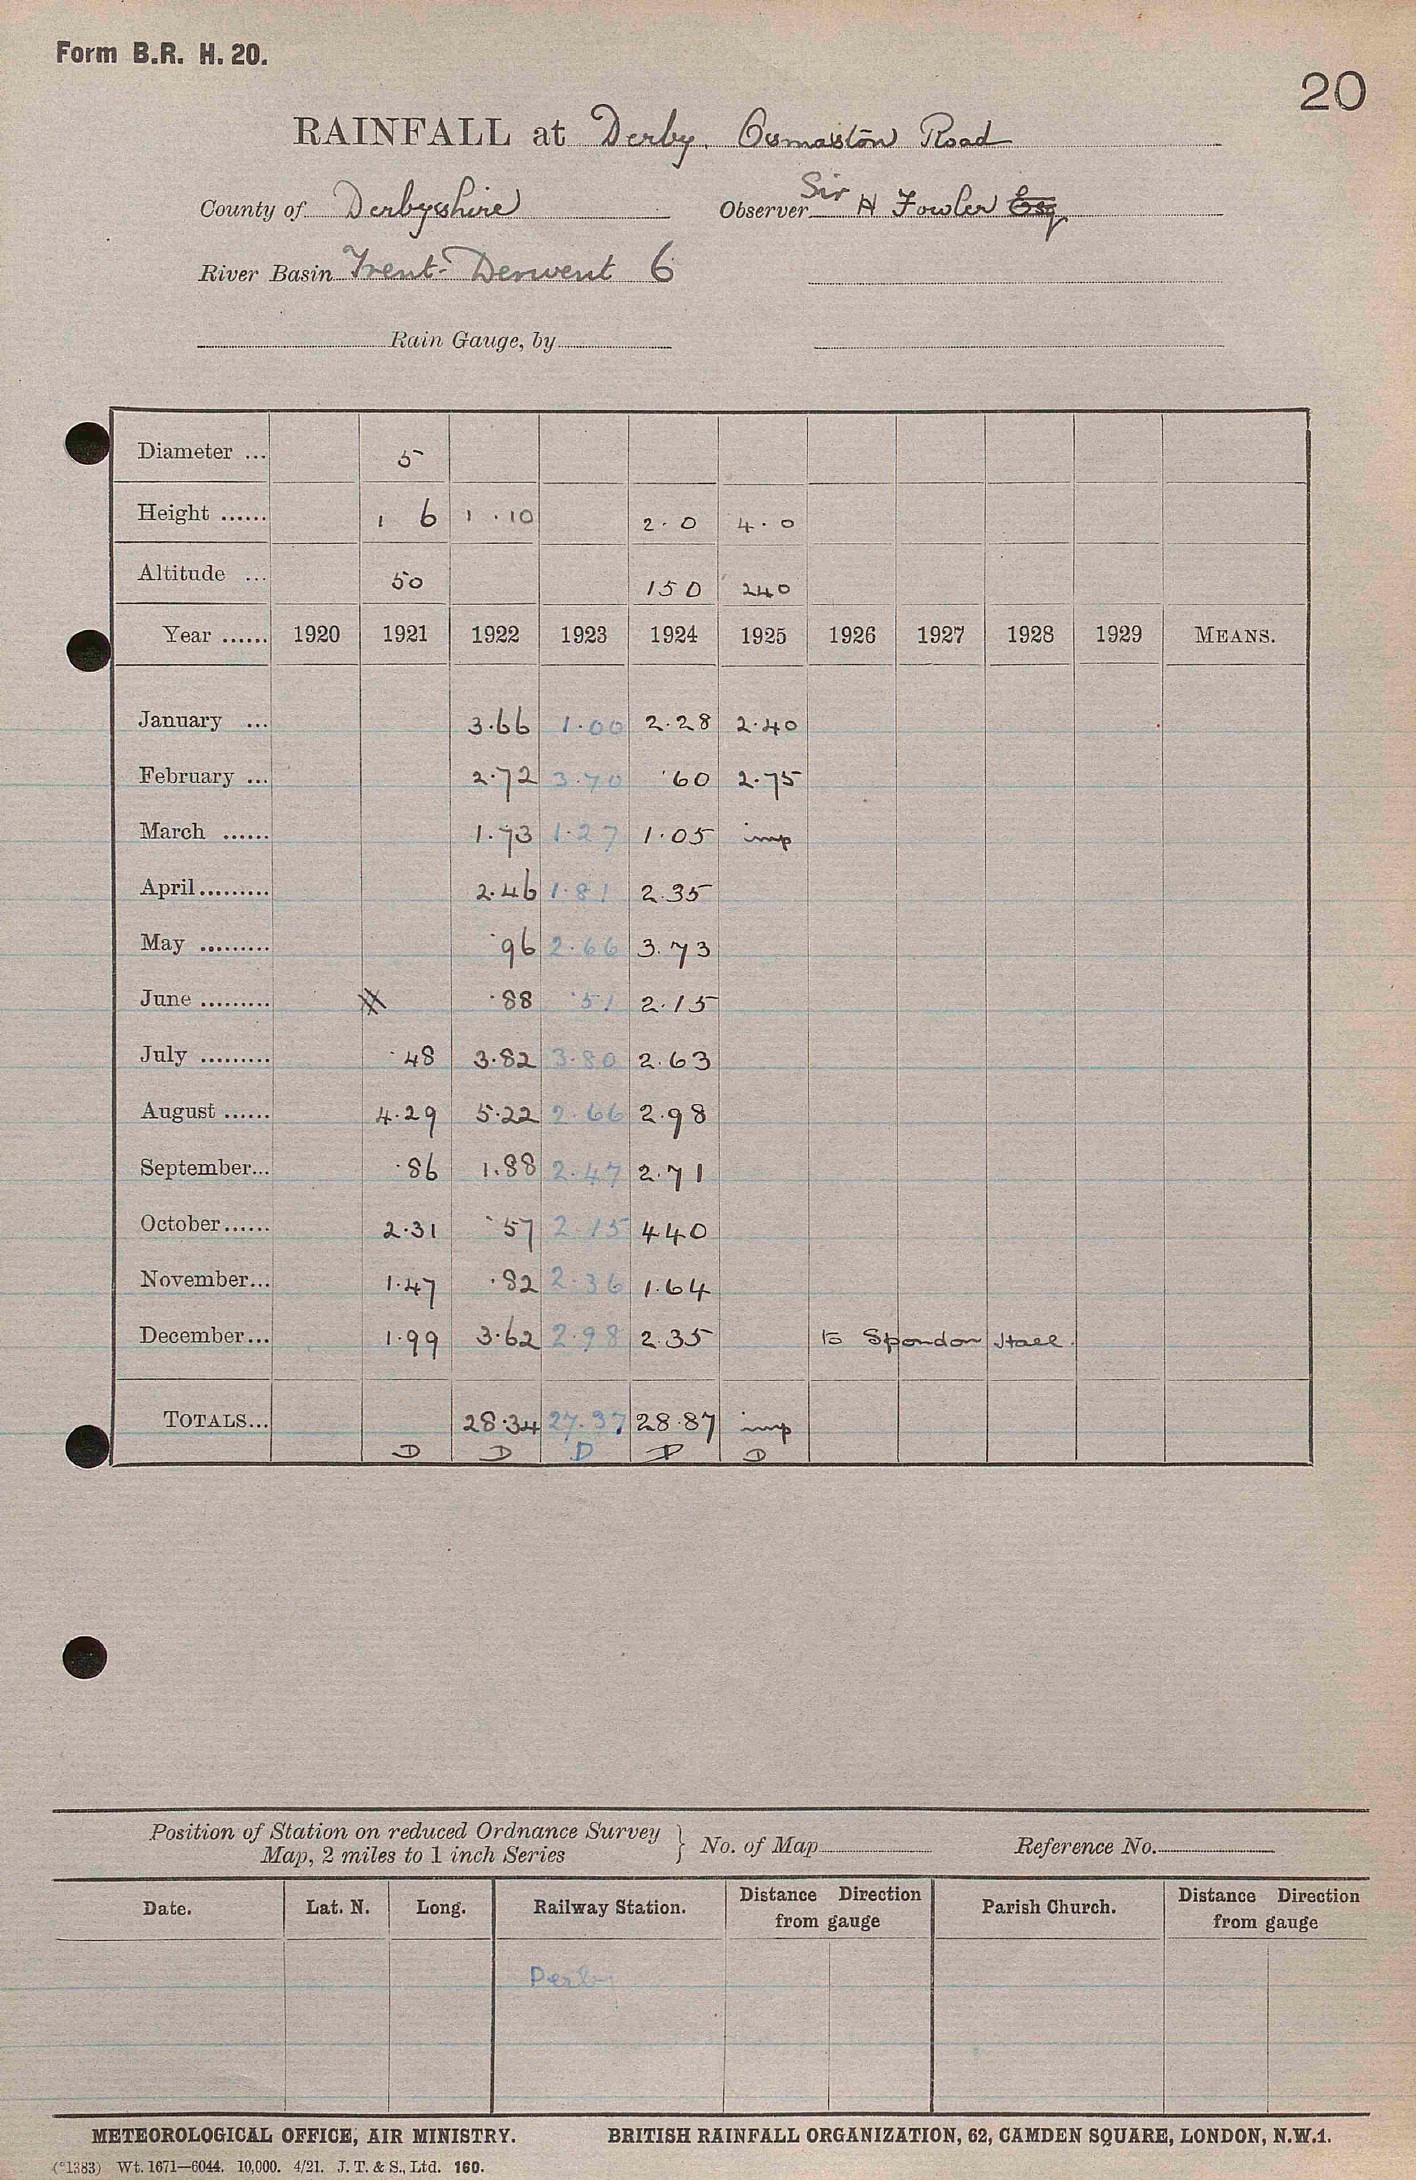 Form B.R. H. 20.
20
RAINFALL at Derby. Osmaston Road
County of Derbyshire Observer Sir H Fowler Esq
River Basin Trent-Derwent 6
Rain Gauge, by
Diameter ... 5
Height ...... 1 6 1.10 2.0 4.0
Altitude ... 50 150 240
Year ...... 1920 1921 1922 1923 1924 1925 1926 1927 1928 1929 MEANS.
January ... 3.66 1.00 2.28 2.40
February ... 2.72 3.70 .60 2.75
March ...... 1.73 1.27 1.05 imp
April......... 2.46 1.81 2.35
May ......... .96 2.66 3.73
June ......... .88 .51 2.15
July ......... .48 3.82 3.80 2.63
August ...... 4.29 5.22 2.66 2.98
September... .86 1.88 2.47 2.71
October...... 2.31 .57 2.15 440
November... 1.47 .82 2.36 1.64
December... 1.99 3.62 2.98 2.35 to Spondon Hall.
TOTALS... 28.34 27.37 28.87 imp
D D D D D
Position of Station on reduced Ordnance Survey
Map, 2 miles to 1 inch Series } No. of Map Reference No.
Date. Lat. N. Long. Railway Station. Distance Direction from gauge Parish Church. Distance Direction from gauge
Derby
METEOROLOGICAL OFFICE, AIR MINISTRY. BRITISH RAINFALL ORGANIZATION, 62, CAMDEN SQUARE, LONDON, N.W.1.
(*1383) Wt. 1671—6044. 10,000. 4/21. J. T. & S., Ltd. 160.